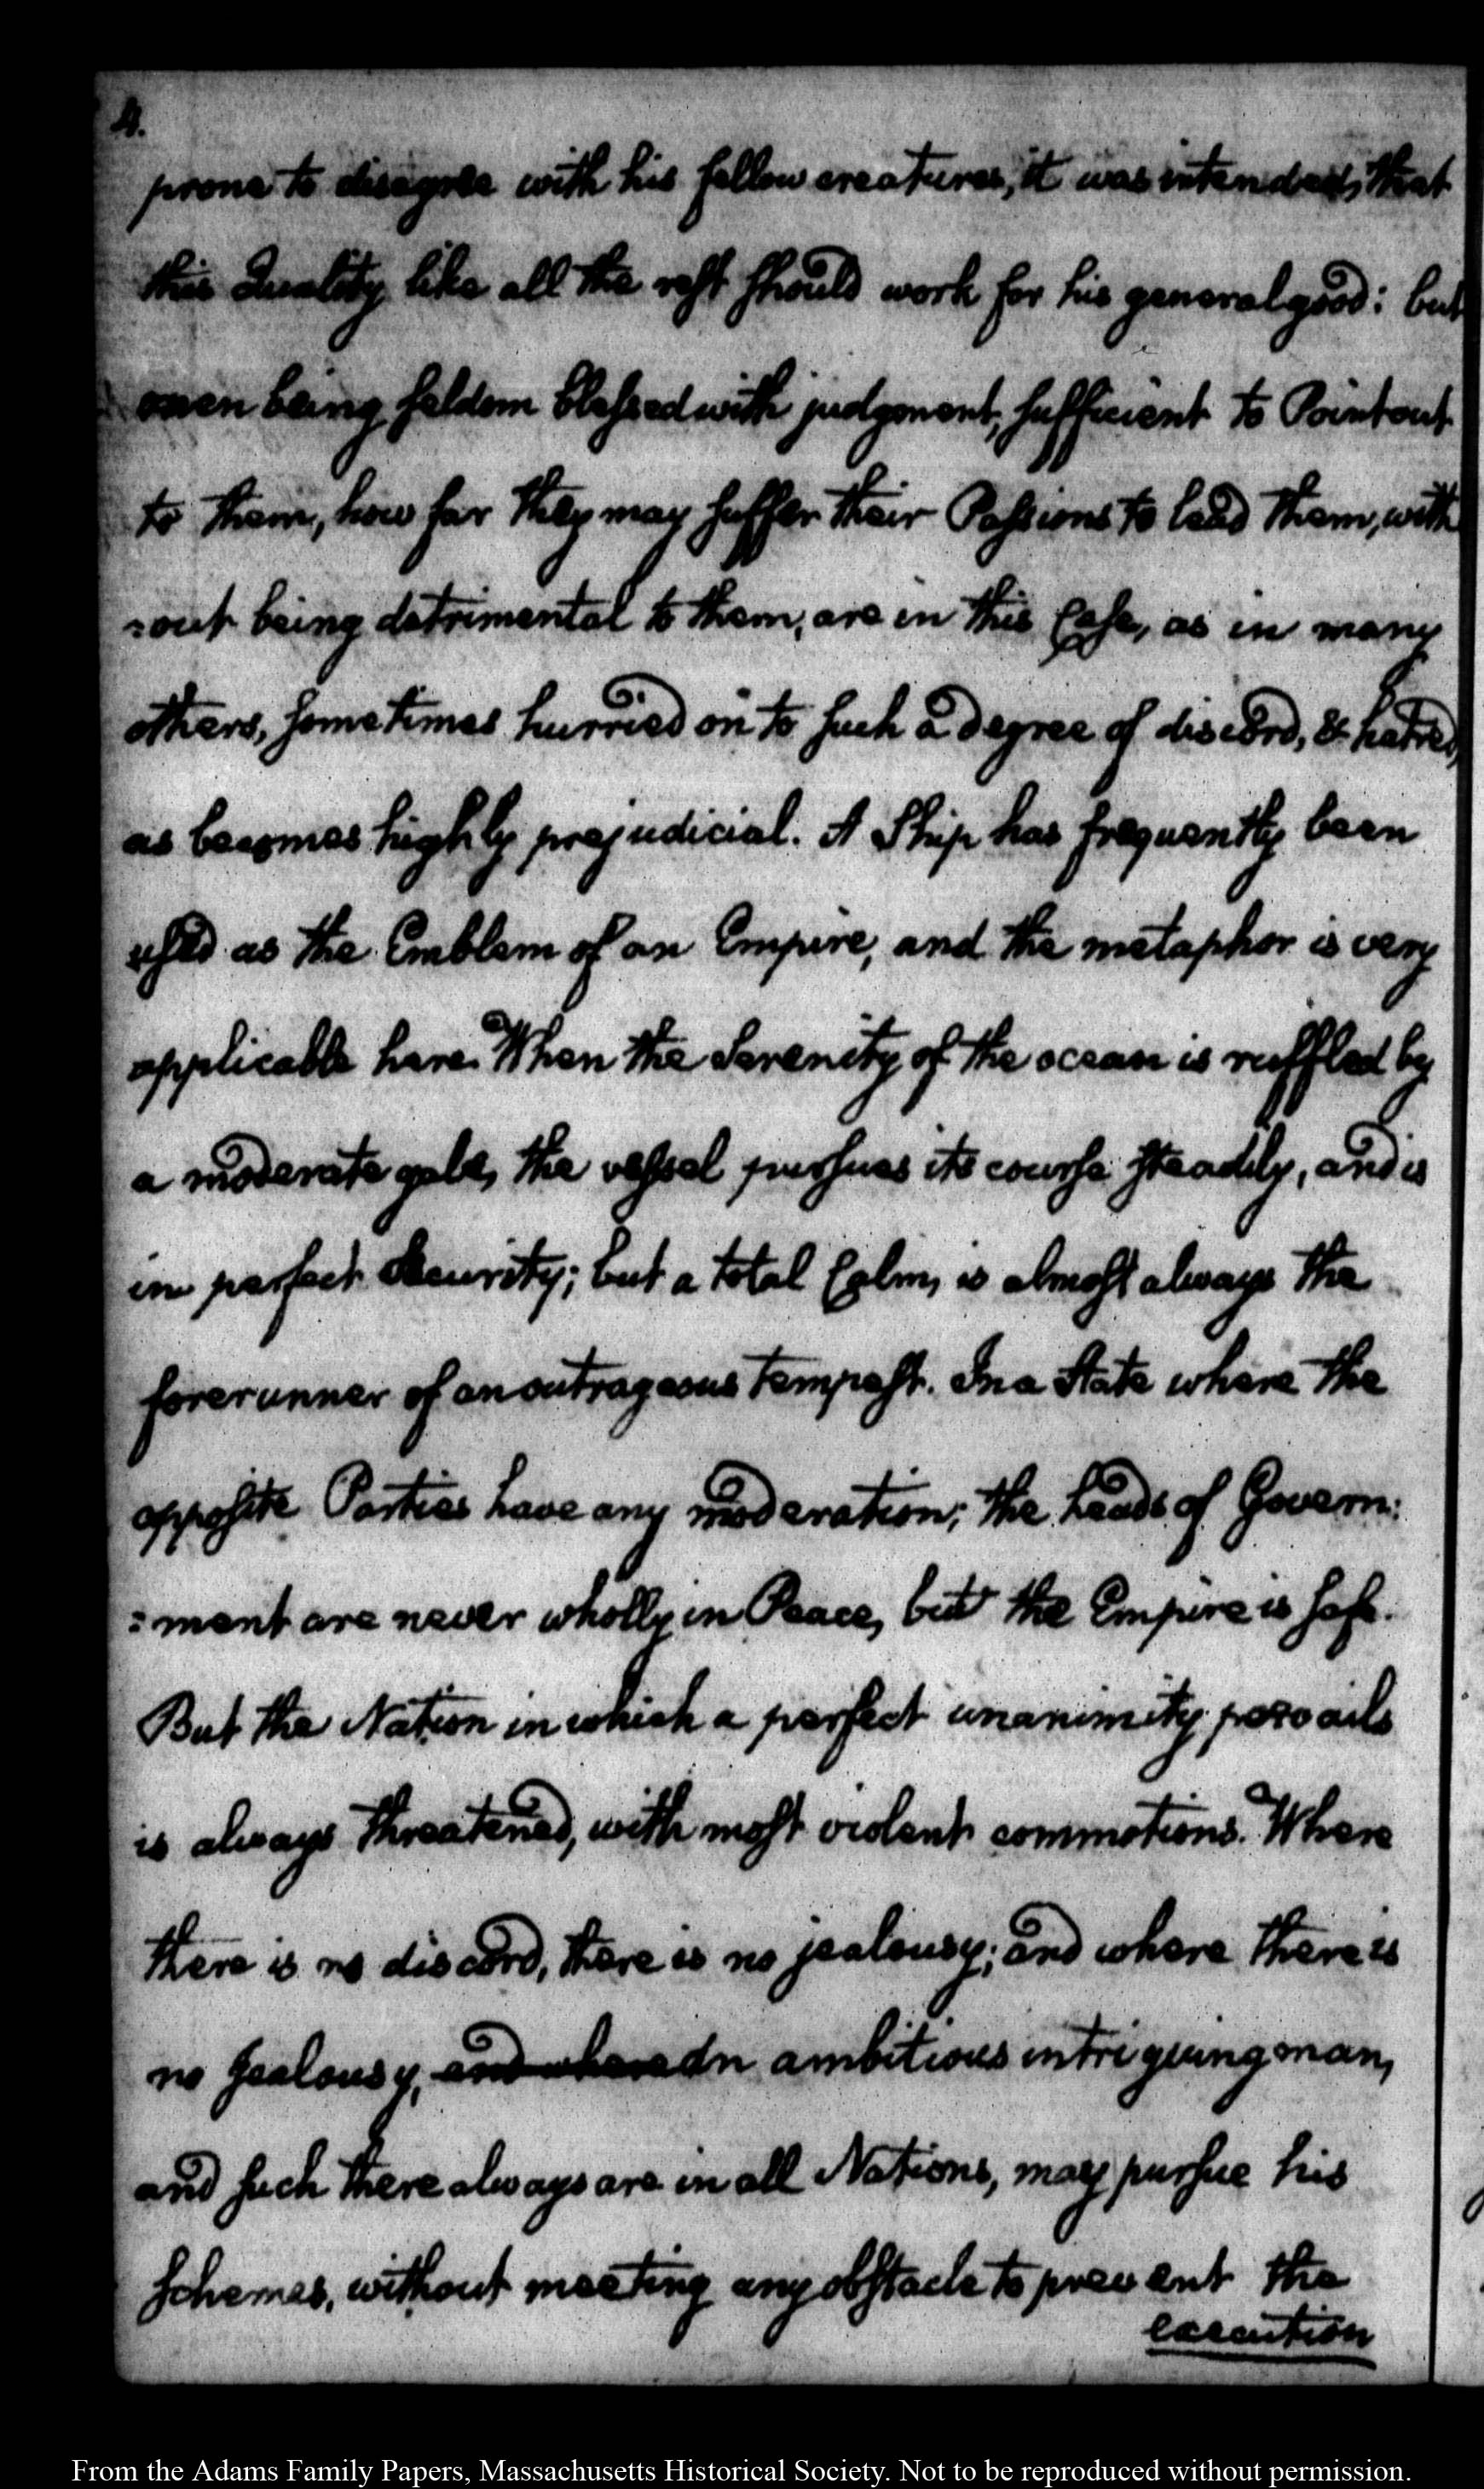 4.
prone to disagree with his fellow creatures, it was intended, that
this Quality like all the rest should work for his general good: but
men being seldom blessed with judgment, sufficient to Point out
to them, how far they may suffer their Passions to lead them, with
:out being detrimental to them, are in this Case, as in many
others, sometimes hurried on to such a degree of discord, & hatred,
as becomes highly prejudicial. A Ship has frequently been
used as the Emblem of an Empire, and the metaphor is very
applicable here. When the Serenity of the ocean is ruffled by
a moderate gale, the vessel pursues its course steadily, and is
in perfect Security; but a total Calm, is almost always the
forerunner of an outrageous tempest. In a State where the
opposite Parties have any moderation; the heads of Govern:
:ment are never wholly in Peace, but the Empire is safe.
But the Nation in which a perfect unanimity prevails
is always threatened, with most violent commotions. Where
there is no discord, there is no jealousy; and where there is
no jealousy, and where an ambitious intriguing man,
and such there always are in all Nations, may pursue his
schemes, without meeting any obstacle to prevent the
execution
From the Adams Family Papers, Massachusetts Historical Society. Not to be reproduced without permission.